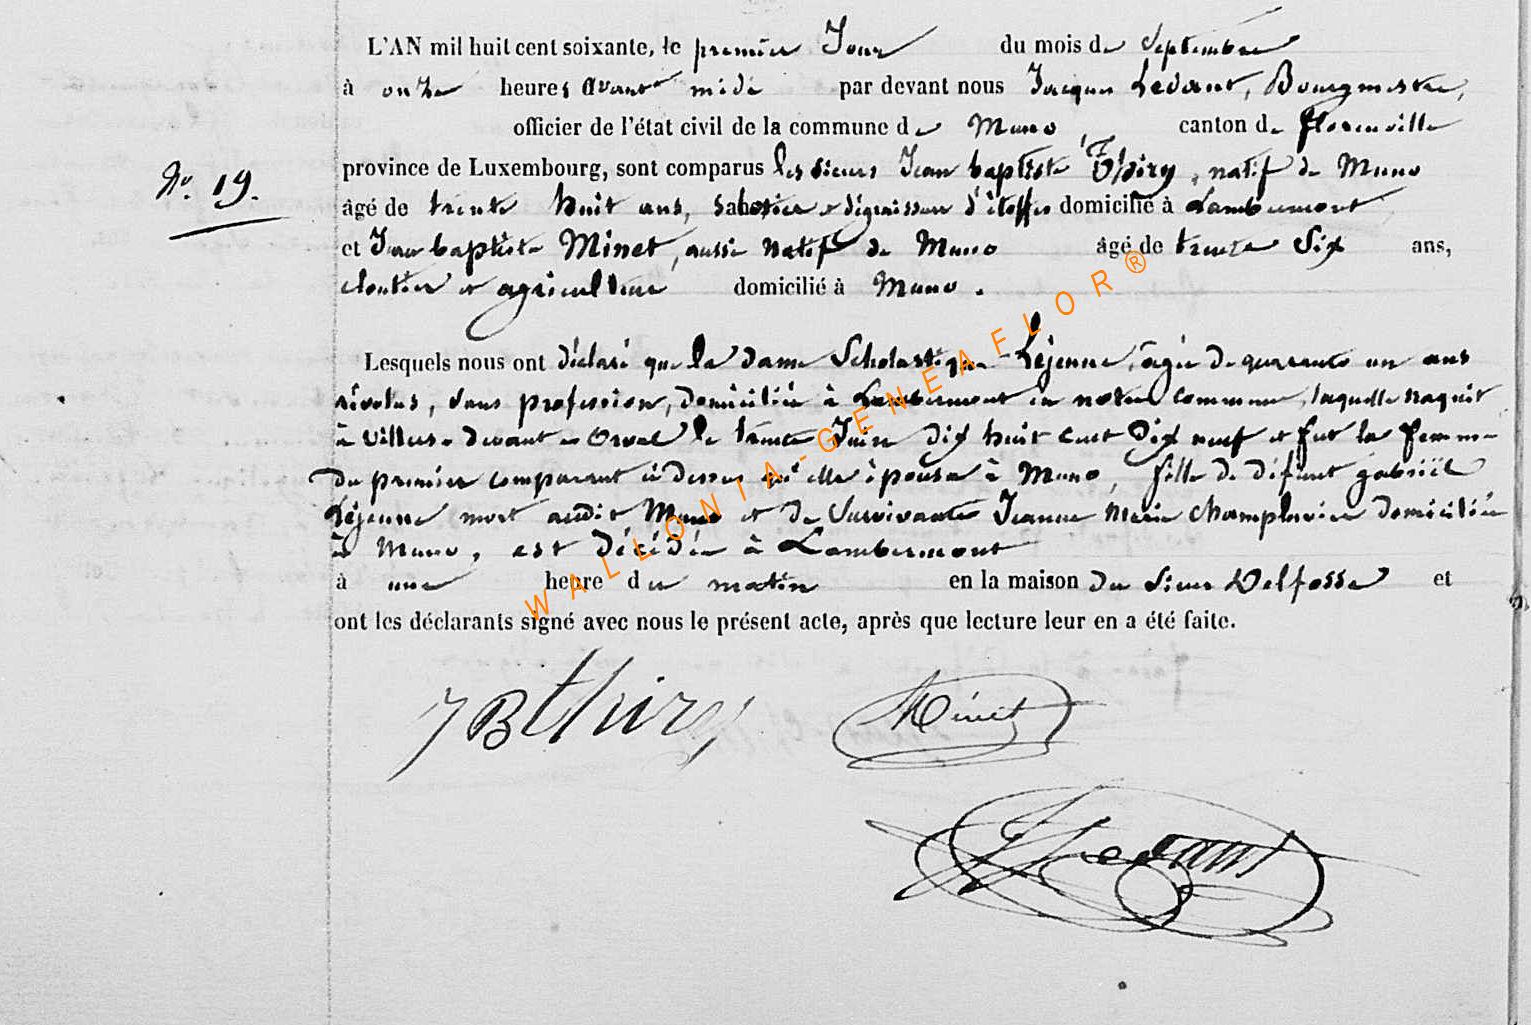 L'AN mil huit cent soixante, le premier Jour du mois de Septembre
à onze heures avant midi par devant nous Jacques Ledant, Bourgmestre,
officier de l'état civil de la commune de Muno, canton de florenville
N.° 19.
province de Luxembourg, sont comparus les sieurs Jean baptiste Thiry, natif de Muno
âgé de trente huit ans, sabotier et dégraisseur d'étoffes domicilié à Lambermont
et Jean baptiste Minet, aussi natif de Muno âgé de trente Six ans,
cloutier et agriculteur domicilié à Muno.
Lesquels nous ont déclaré que la dame Scholastique Léjeune, âgée de quarante un ans
révolus, sans profession, domiciliée à Lambermont en notre commune, laquelle naquit
à Villers-devant-Orval le trente Juin dix huit cent dix neuf et fut la femme
du premier comparant ci dessus qu'elle épousa à Muno, fille de défunt gabriël
Léjeune mort audit Muno et de Survivante Jeanne Marie domiciliée
à Muno, est décédée à Lambermont
à une heure du matin en la maison du Sieur Delfosse et
ont les déclarants signé avec nous le présent acte, après que lecture leur en a été faite.
JB thiry Minet
J Ledant
WALLONIA-GENEAFLOR®